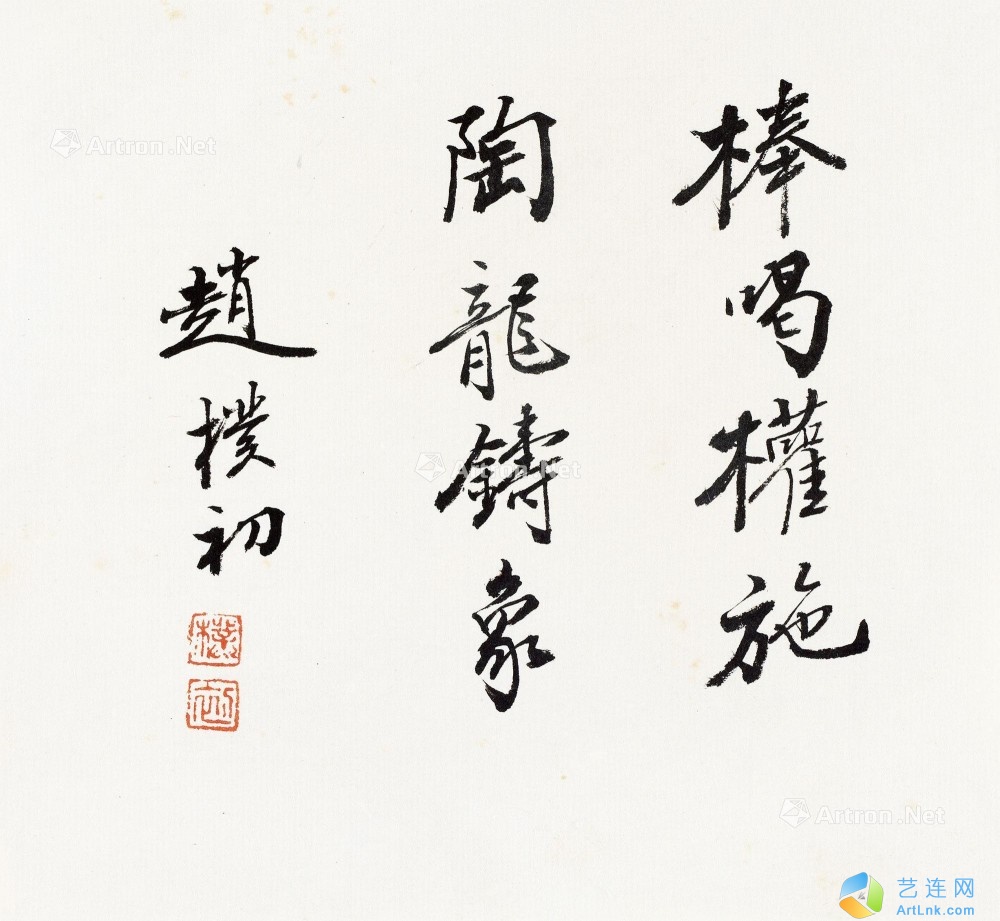 棒喝權施
陶龍鑄象
趙樸初
樸初
Artron.Net
Artron.Net
Artron.Net
艺连网
ArtLnk.com